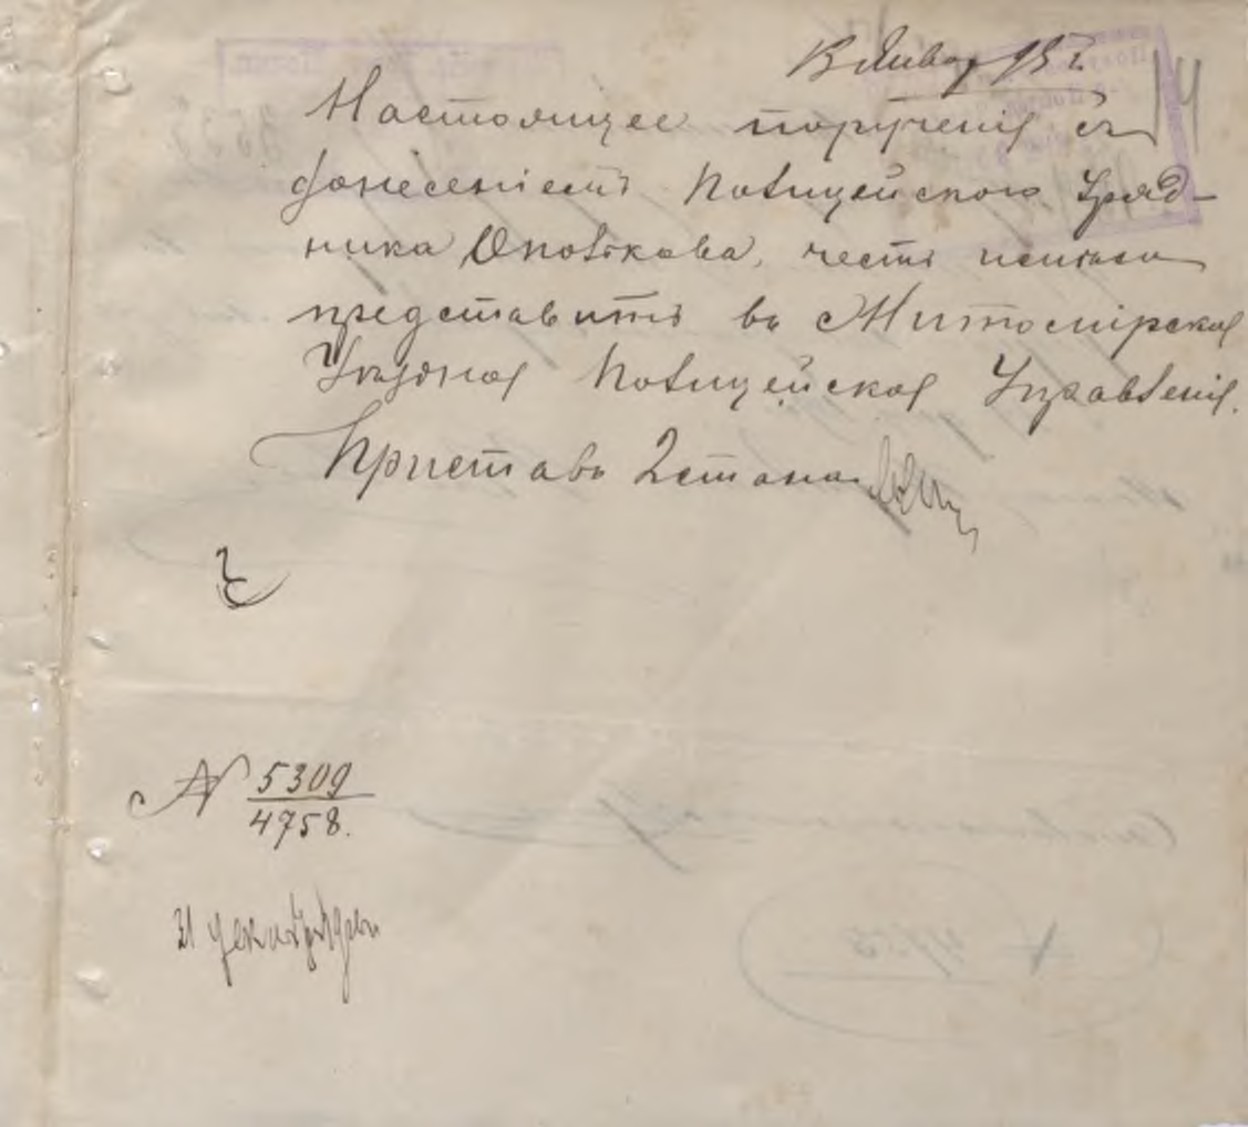 Января 95 г.
14
Настоящее порученіе съ
донесеніемъ Полицейского Уряд-
ника честь имѣю
представить въ Житомірское
Уѣздное Полицейское Управленіе.
Приставъ 2 стана
№ 5309
4758.
31 декабря